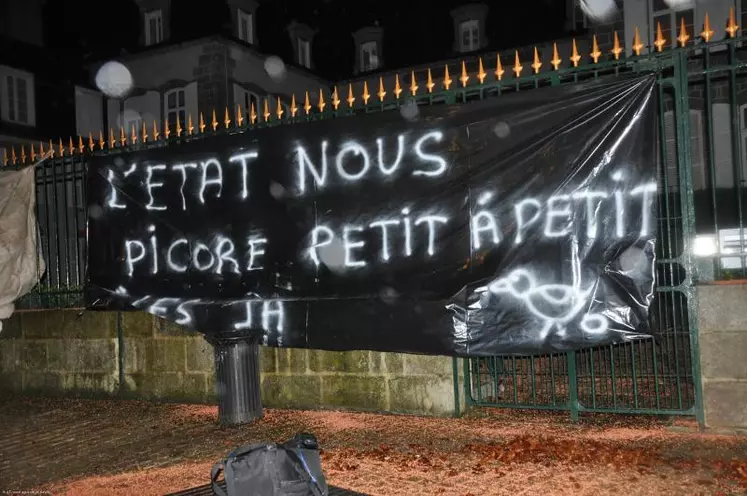 L'ETAT NOUS
PiCORE PETiT á PETiT
LES JA